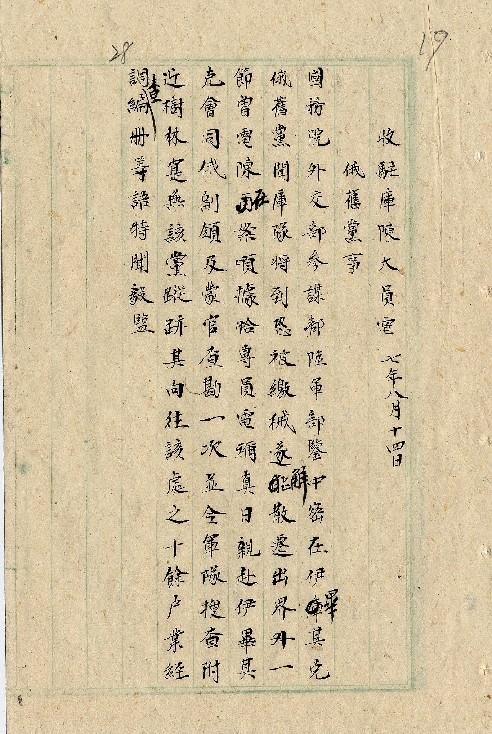 28
19
收駐庫陳大員電 七年八月十四日
俄舊黨事
國務院外交部參謀部陸軍部鑒中密在伊畢其克
俄舊黨聞庫隊將到恐被繳械遂解散遷出界外一
節曾電陳在案頃據恰專員電稱真日親赴伊畢其
克會同俄副領及蒙官查勘一次並令軍隊搜查附
近樹林寔無該黨蹤跡其向往該處之十餘户業經
調查編册等語特聞毅鹽